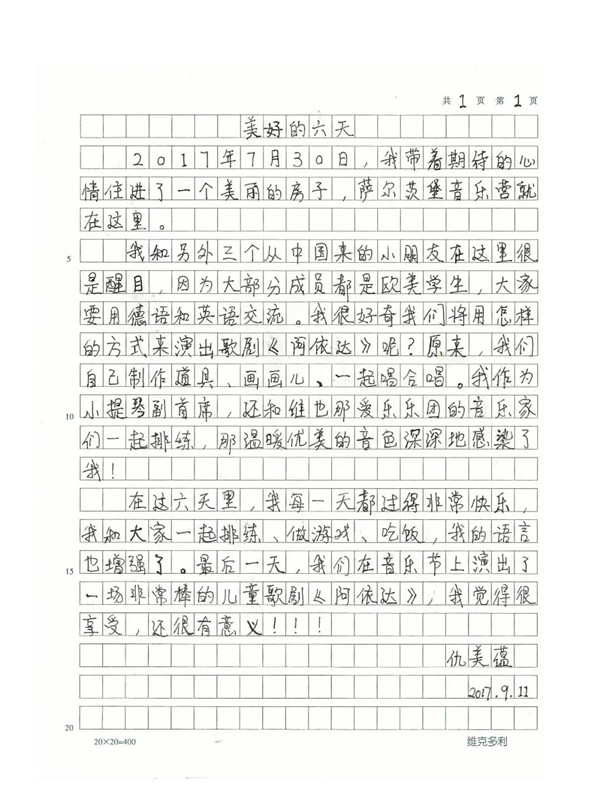 共1页 第1页
美好的六天
2017年7月30日，我带着期待的心
情住进了一个美丽的房子，萨尔茨堡音乐营就
在这里。
5
我和另外三个从中国来的小朋友在这里很
是醒目，因为大部分成员都是欧美学生，大家
要用德语和英语交流。我很好奇我们将用怎样
的方式来演出歌剧《阿依达》呢？原来，我们
自己制作道具、画画儿、一起唱合唱。我作为
10
小提琴副首席，还和维也那爱乐乐团的音乐家
们一起排练，那温暖优美的音色深深地感染了
我！
在这六天里，我每一天都过得非常快乐，
我和大家一起排练、做游戏、吃饭，我的语言
15
也增强了。最后一天，我们在音乐节上演出了
一场非常棒的儿童歌剧《阿依达》，我觉得很
享受，还很有意义！！！
仇美蕴
2017.9.11
20
20×20=400
维克多利